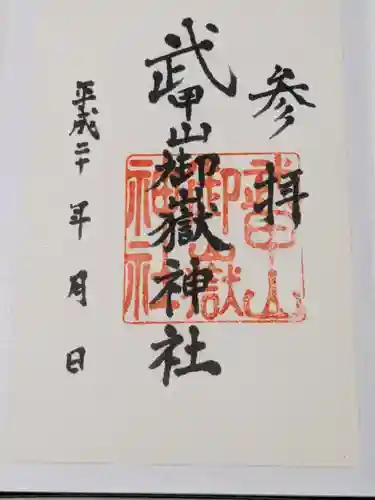 参拝
武甲山御嶽神社
平成二十年月日
武甲山
御嶽
神社